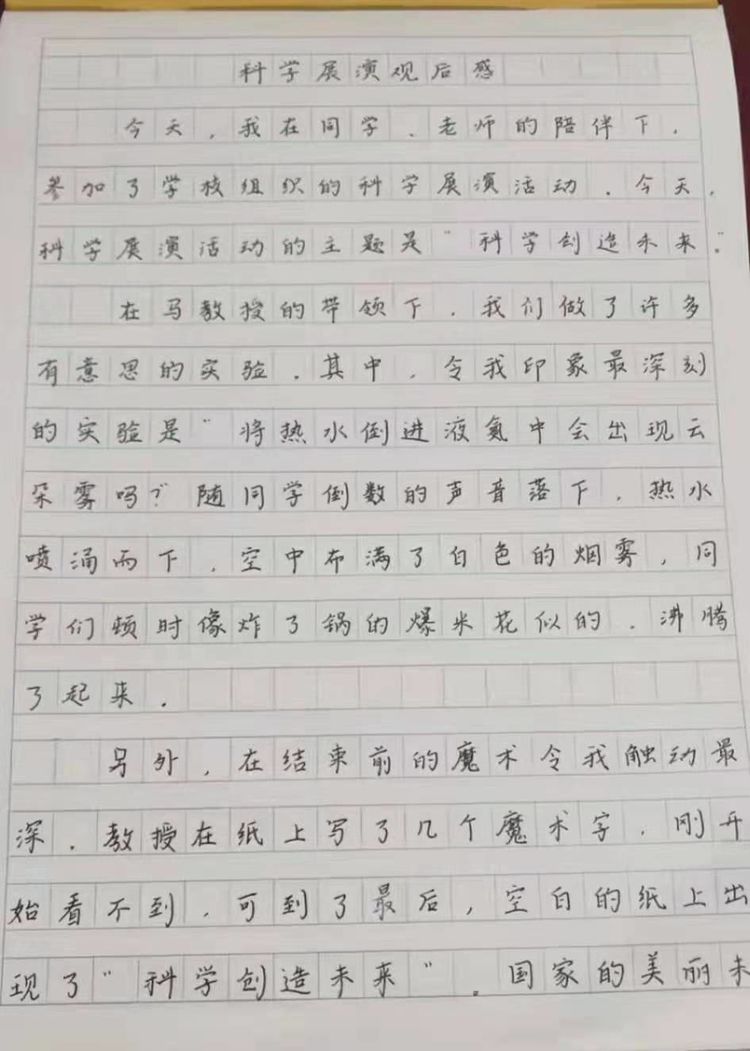 科学展演观后感
今天，我在同学、老师的陪伴下，
参加了学校组织的科学展演活动．今天，
科学展演活动的主题是“科学创造未来”。
在马教授的带领下，我们做了许多
有意思的实验．其中，令我印象最深刻
的实验是“将热水倒进液氮中会出现云
朵雾吗？”随同学倒数的声音落下，热水
喷涌而下，空中布满了白色的烟雾，同
学们顿时像炸了锅的爆米花似的，沸腾
了起来．
另外，在结束前的魔术令我触动最
深．教授在纸上写了几个魔术字，刚开
始看不到，可到了最后，空白的纸上出
现了“科学创造未来”。国家的美丽未